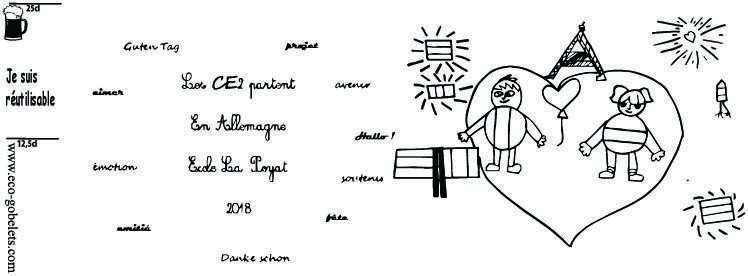 25cl
Je suis
réutilisable
12,5cl
www.eco-gobelets.com
Guten Tag
projet
aimer
Les CE2 partent
avenir
En Allemagne
Hallo !
émotion
Ecole La Poyat
soutenir
2018
amitié
fête
Danke schon